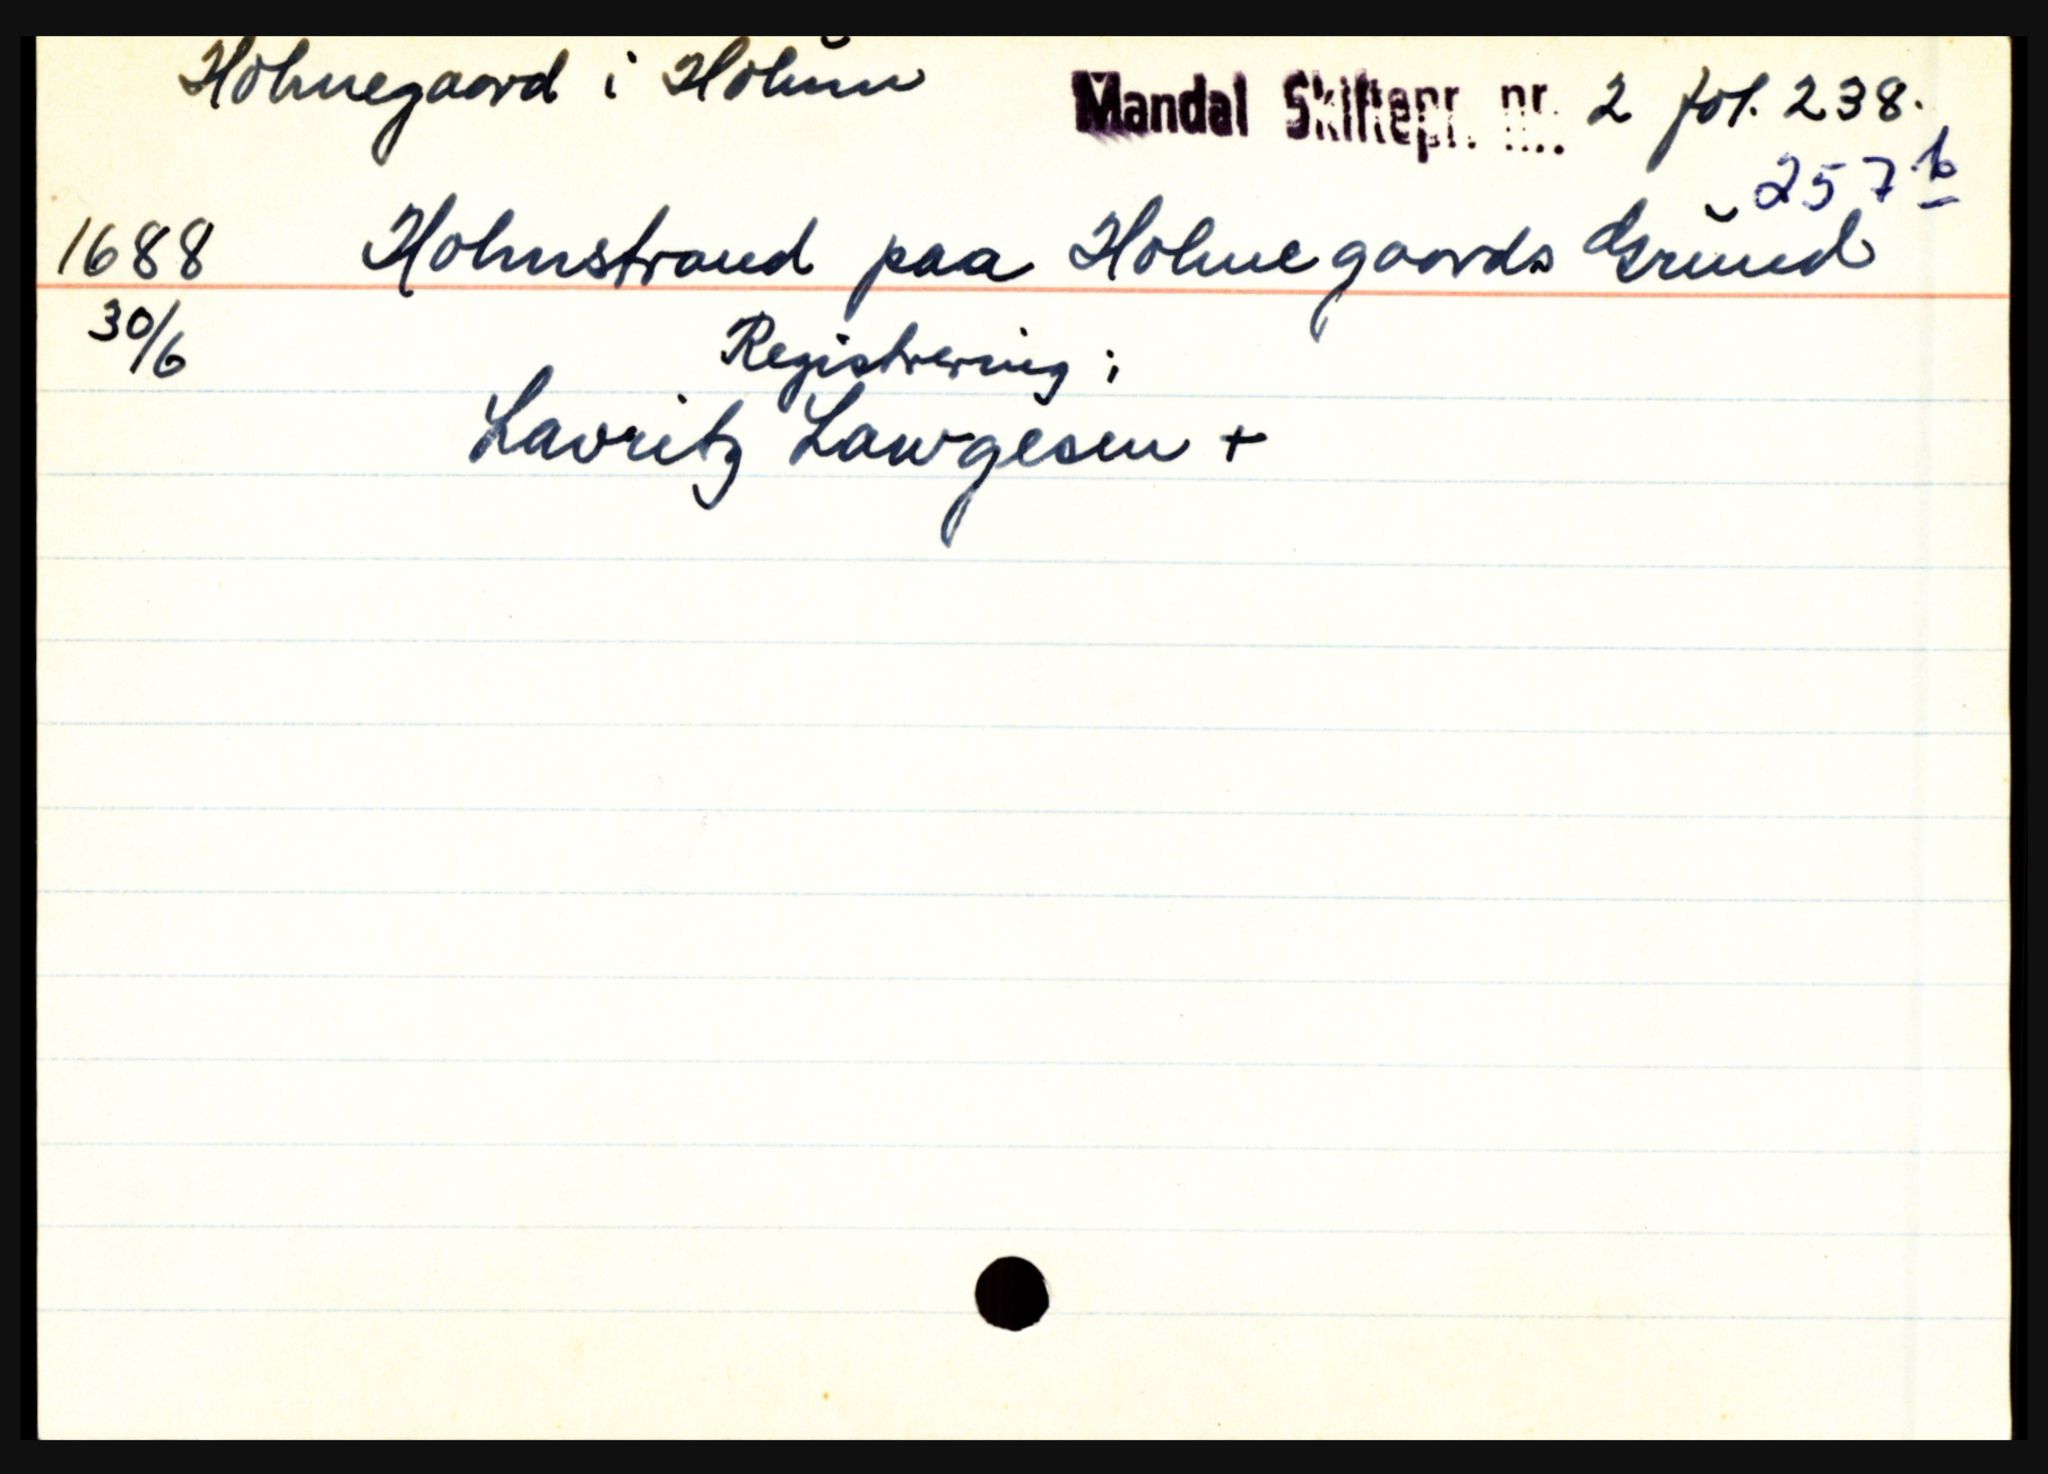 Holmegaard i Holum Mandal Skiftepr. nr. 2 fol. 238.
257 b
1688 Holmstrand paa Holmegaards Grund
30/6 Registrering i
Lavritz Lawgesen +